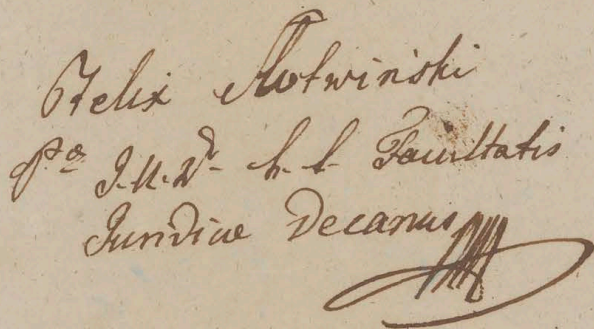 Felix Słotwiński
J. U. Dr. h. t. Facultatis
Juridicae Decanus